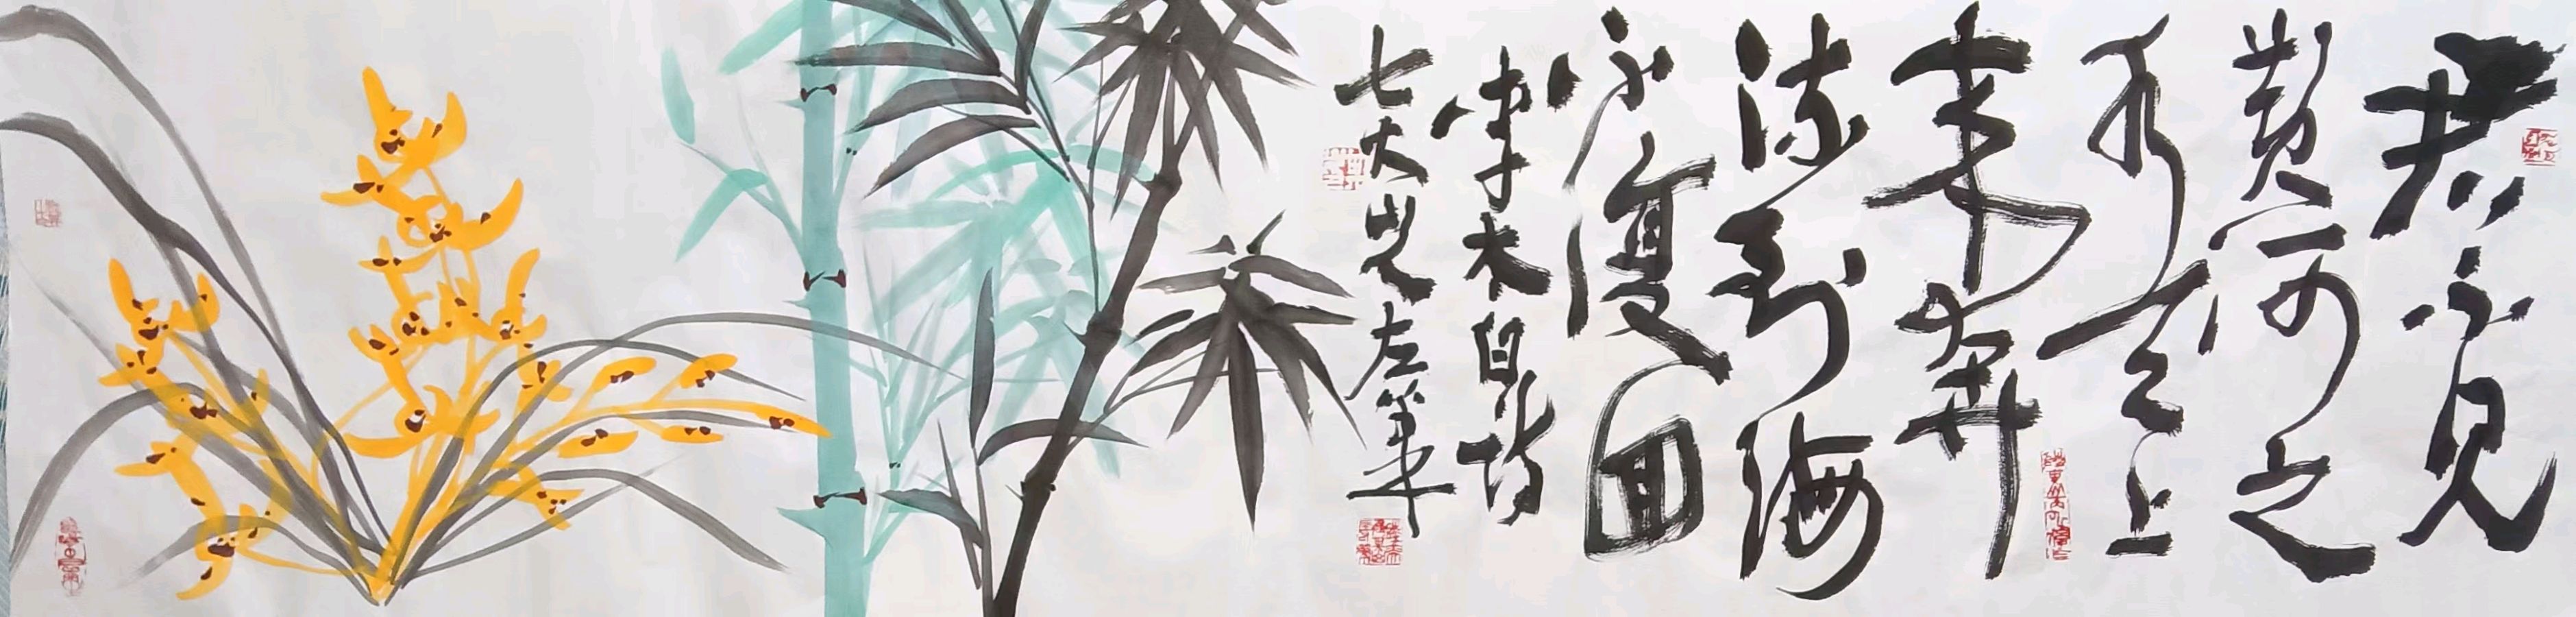 君不见
黄河之
水天上
来奔
流到海
不復回
李太白诗
七大兄左笔